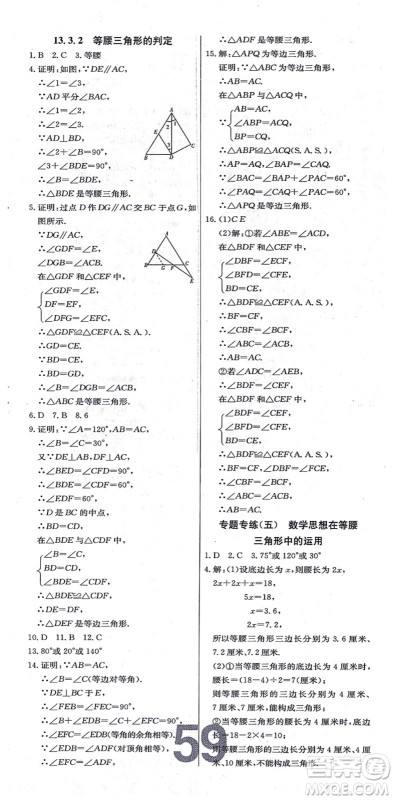 13.3.2 等腰三角形的判定
1.B 2.C 3.等腰
4.证明:如图,∵DE∥AC,
∴∠1=∠3,
∵AD平分∠BAC,
∴∠1=∠2,
∴∠2=∠3.
∵AD⊥BD,
∴∠2+∠B=90°,
∴∠BDE=∠B,
∴△BDE是等腰三角形.
5.证明:过点D作DG∥AC交BC于点G,如
图所示.
∵DG∥AC,
∴∠GDF=∠E,
∠DGB=∠ACB,
在△GDF和△CEF中,
∠GDF=∠E,
DF=EF,
∠DFG=∠EFC,
∴△GDF≌△CEF(A.S.A.),
∴GD=CE.
∵BD=CE,
∴BD=GD,
∴∠B=∠DGB=∠ACB,
∴△ABC是等腰三角形.
6.D 7.B 8.6
9.证明:∵∠A=120°,AB=AC,
∴∠B=∠C=30°,
又∵DE⊥AB,DF⊥AC,
∴∠BED=∠CFD=90°,
∴∠BDE=∠CDF=60°,
∴∠EDF=60°.
∵D是BC的中点,
∴BD=CD.
在△BDE与△CDF中,
∠B=∠C,
BD=CD,
∠BDE=∠CDF,
∴△BDE≌△CDF(A.S.A.),
∴DE=DF,
∴△DEF是等边三角形.
10.D 11.B 12.D
13.80°或20°或140°
14.证明:∵AB=AC,
∴∠B=∠C(等边对等角).
∵EF⊥BC,
∴∠B+∠BDE=90°,
∠C+∠F=90°,
∴∠BDE=∠F(等角的余角相等).
∵∠BDE=∠ADF(对顶角相等),
∴∠F=∠ADF,
∴△ADF是等腰三角形.
15.解:∵△APQ为等边三角形.
∴△ABC为等边三角形,
∴AB=AC.
在△ABP与△ACQ中,
AB=AC,
BP=CQ,
∴△ABP≌△ACQ(S.A.S.),
∴AP=AQ,
∴△APQ是等边三角形.
16.(1)C E
(2)解:①若∠BDF=∠CEF,
在△BDF和△CEF中,
∠BDF=∠CEF,
BD=CE,
∴△BDF≌△CEF(A.A.S.),
∴BF=CF,
∴∠FBC=∠FCB,
∴∠ABC=∠ACB,
∴AB=AC.
②若∠ADC=∠AEB,
则∠BDF=∠CEF,
在△BDF和△CEF中,
∠BDF=∠CEF,
BD=CE,
∴△BDF≌△CEF(A.A.S.),
∴BF=CF,
∴∠FBC=∠FCB,
∴∠ABC=∠ACB,
∴AB=AC.
专题专练(五) 数学思想在等腰
三角形中的运用
1.D 2.C 3.75°或120°或30°
4.解:(1)设底边长为x,则腰长为2x,
2x+2x+x=18,
5x=18,
x=3.6,
所以等腰三角形三边长分别为3.6厘米、
7.2厘米、7.2厘米.
(2)①当等腰三角形的底边长为4厘米时,
腰长=(18-4)÷2=7(厘米);
则等腰三角形的三边长分别为4厘米、
7厘米、7厘米,能构成三角形;
②当等腰三角形的腰长为4厘米时,
底边长=18-2×4=10(厘米);
则等腰三角形的三边长分别为4厘米、4
厘米、10厘米,不能构成三角形.
59